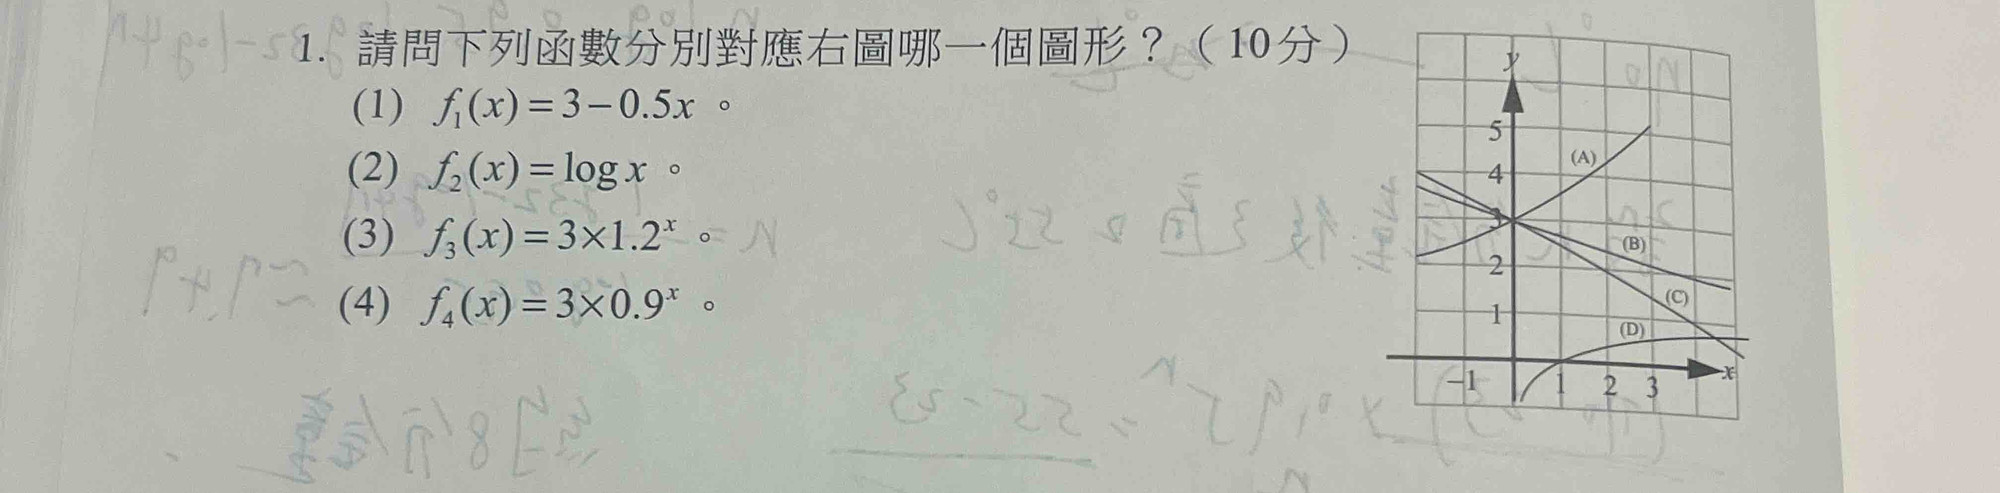 1. 請問下列函數分別對應右圖哪一個圖形？（10分）
(1) f₁(x)=3−0.5x。
(2) f₂(x)=log x。
(3) f₃(x)=3×1.2ˣ。
(4) f₄(x)=3×0.9ˣ。
y
5
(A)
4
3
(B)
2
(C)
1
(D)
x
−1 1 2 3